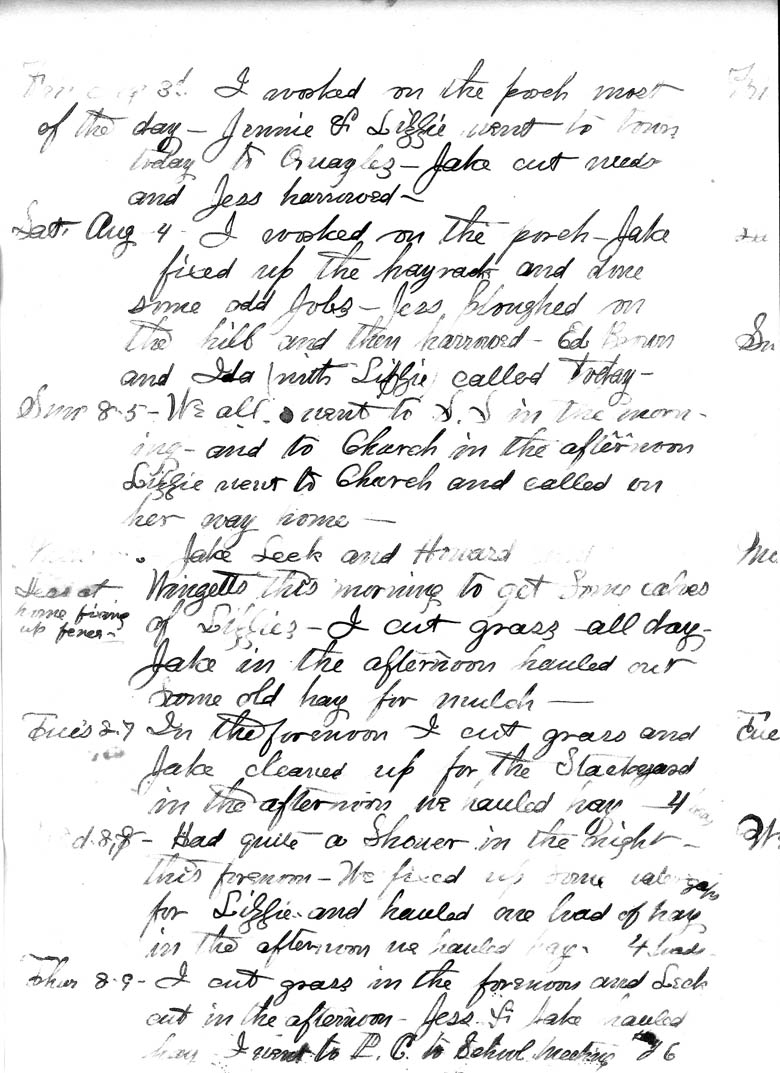 3d. I worked on the porch most
of the day - Jennie & Lizzie went to town
today to Quagles - Jake cut weeds
and Jess harrowed -
Sat. Aug 4 - I worked on the porch - Jake
fixed up the hayrack and done
some odd Jobs - Jess ploughed on
the hill and then harrowed - Ed Brown
and Ida (with Lizzie) called Today -
Sun 8-5 - We all went to S.S in the morn-
ing - and to Church in the afternoon
Lizzie went to Church and called on
her way home -
Jake Leek and Howard
Wingetts this morning to get Some calves
of Lizzies - I cut grass all day -
Jess at
home fixing
up fence -
Jake in the afternoon hauled out
some old hay for mulch -
Tues 8-7 In the forenoon I cut grass and
Jake cleaned up for the Stackyard
in the afternoon we hauled hay - 4
8,8 - Had quite a Shower in the night -
this forenoon - We fixed up some gaps
for Lizzie and hauled one load of hay
in the afternoon we hauled hay - 4 loads
Thur 8-9 - I cut grass in the forenoon and Leek
cut in the afternoon - Jess & Jake hauled
hay - I went to P. C. to School meeting 6
Fri
Su
Mo
Tue
W